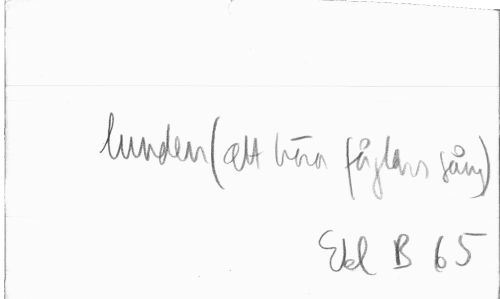 lunden (att höra fåglars sång)
Ekel B 65